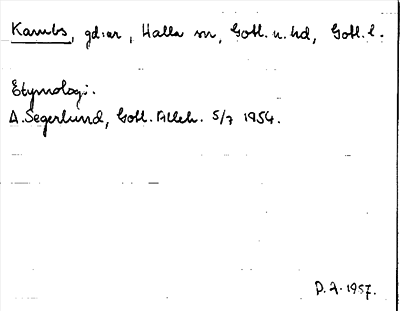 Kambs, gd:ar, Halla sn, Gotl. n. hd, Gotl. l.
Etymologi.
A. Segerlund, Gotl. Alleh. 5/7 1954.
D.A. 1957.